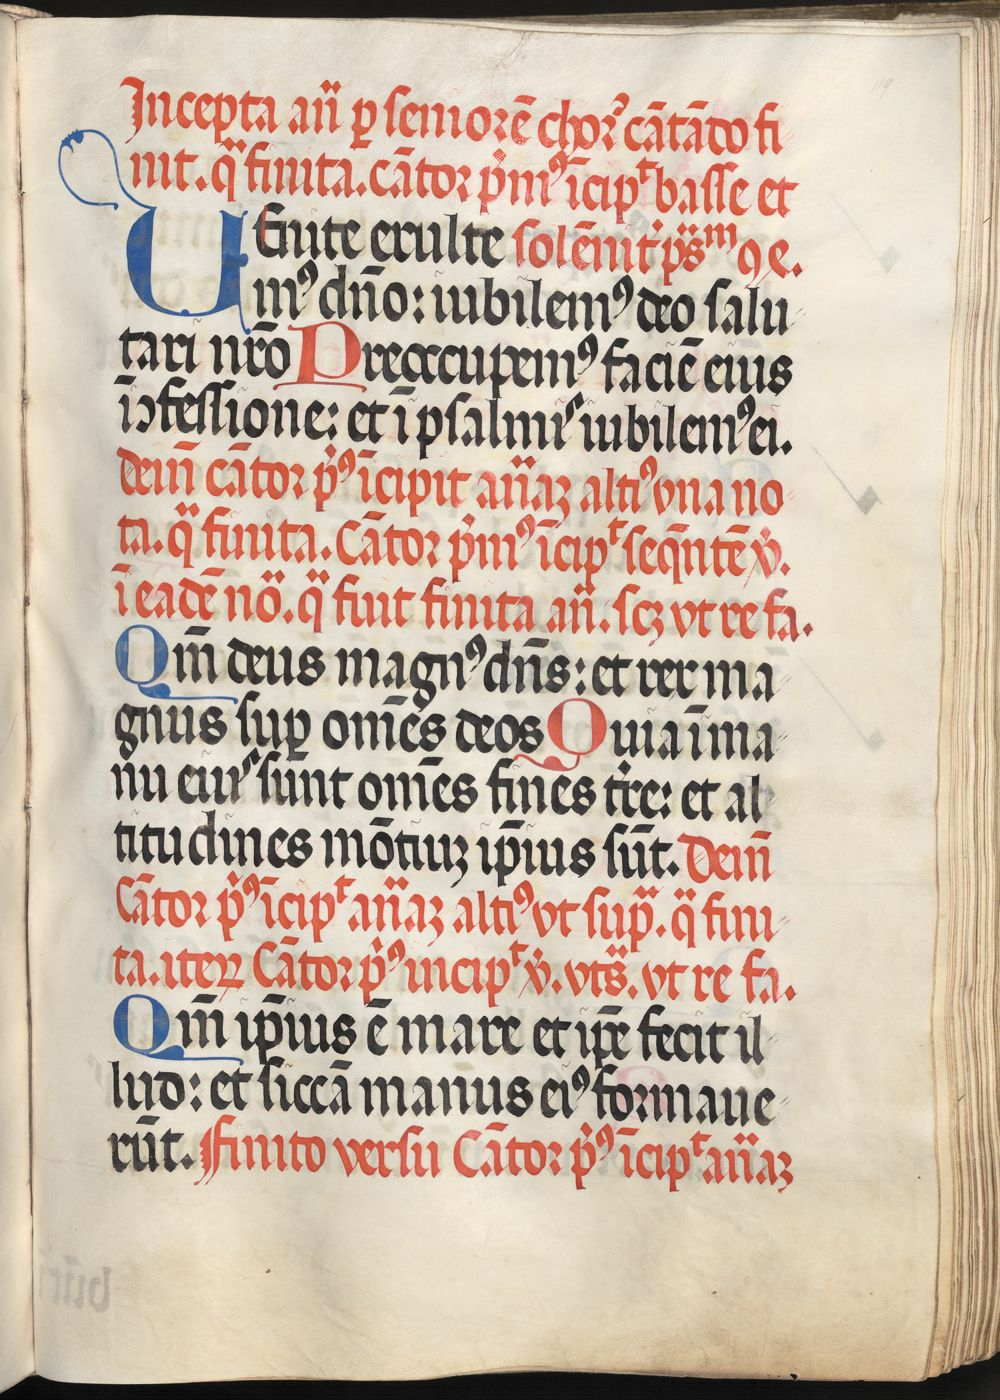 Incepta an̄ ꝑ seniorē chorꝰ cātādo fi
nit. q̄ finita. cātor p̄mꝰ īcipᵗ basse et
Uenite exulte solēnit̉ p̄sᵐ ꝙ e.
mꝰ dn̄o: iubilemꝰ deo salu
tari nr̄o Preoccupemꝰ faciē eius
īↄfessione: et ī psalmis iubilemꝰ ei.
dein̄ cātor p̉ꝰ īcipit an̄aꝫ altiꝰ vna no
ta. q̄ finita. Cātor p̄mꝰ īcipᵗ seqn̄tē v̉.
ī eadē nō. q̄ fiut finita an̄. scꝫ vt re fa.
Qm̄ deus magnꝰ dn̄s: et rex ma
gnus suꝑ om̄es deos Quia ī ma
nu eius sunt om̄es fines tr̄e: et al
titudines mōtiuꝫ ip̄ius sūt. Dein̄
Cātor p̉ꝰ īcipᵗ an̄aꝫ altiꝰ vt sup̄. q̄ fini
ta. iteꝝ Cātor p̉ꝰ incipᵗ v̉. vts̄. vt re fa.
Qm̄ ip̄ius ē mare et ip̄e fecit il
lud: et siccā manus eiꝰ formaue
rūt. Finito versu Cātor p̉ꝰ īcipᵗ an̄aꝫ